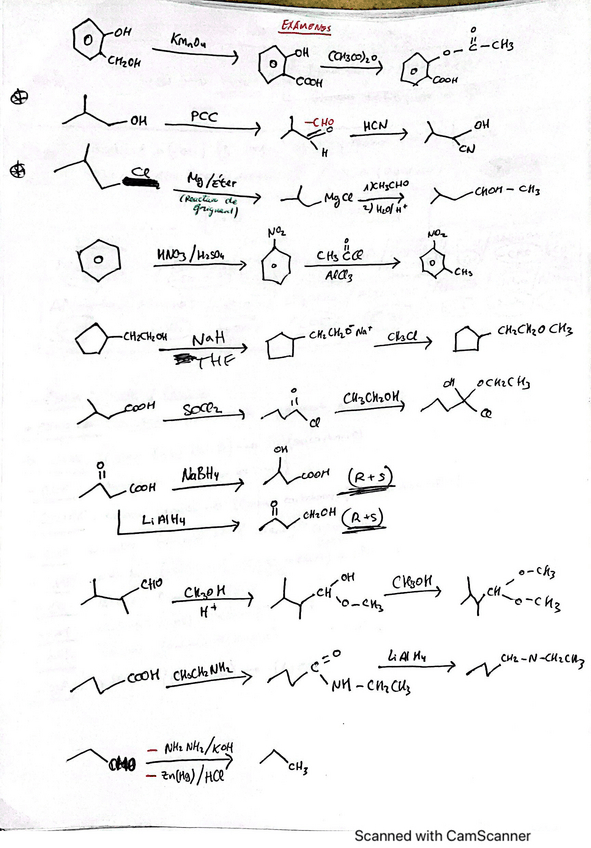 EXÁMENES
OH CH2OH KMnO4 OH COOH (CH3CO)2O O-C-CH3 O COOH
OH PCC -CHO O H HCN OH CN
Cl Mg/Éter (Reactivo de Grignard) MgCl 1) CH3CHO 2) H2O/H+ CHOH-CH3
HNO3/H2SO4 NO2 CH3CCl O AlCl3 NO2 CH3
CH2CH2OH NaH THF CH2CH2O- Na+ CH3Cl CH2CH2OCH3
COOH SOCl2 O Cl CH3CH2OH OH OCH2CH3 Cl
O COOH NaBH4 OH COOH (R+S)
LiAlH4 O CH2OH (R+S)
CHO CH3OH H+ CH OH O-CH3 CH3OH CH O-CH3 O-CH3
COOH CH3CH2NH2 C=O NH-CH2CH3 LiAlH4 CH2-N-CH2CH3
- NH2NH2/KOH CH3
- Zn(Hg)/HCl
Scanned with CamScanner